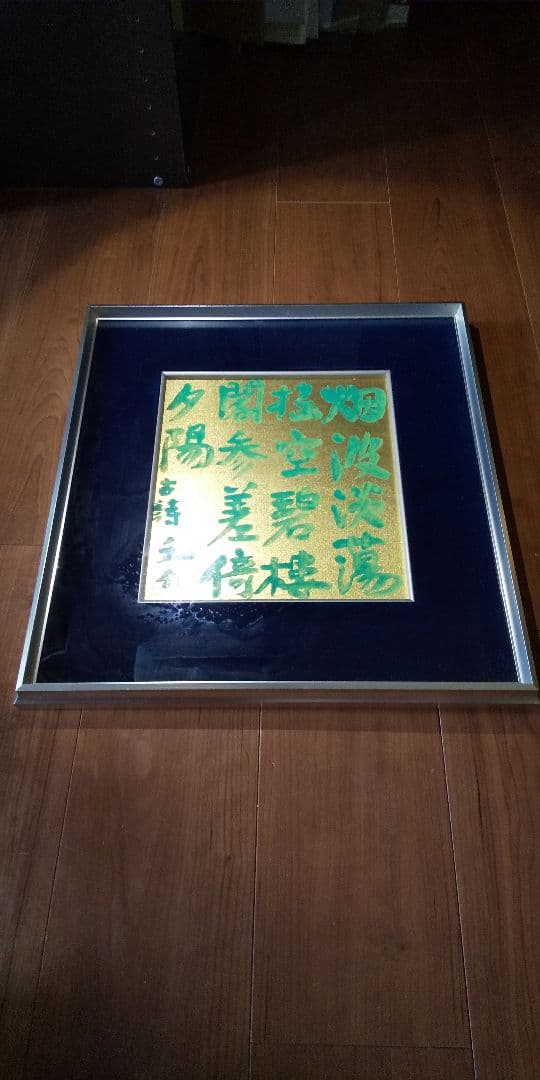 烟波淡蕩
揺空碧樓
閣参差倚
夕陽
古詩